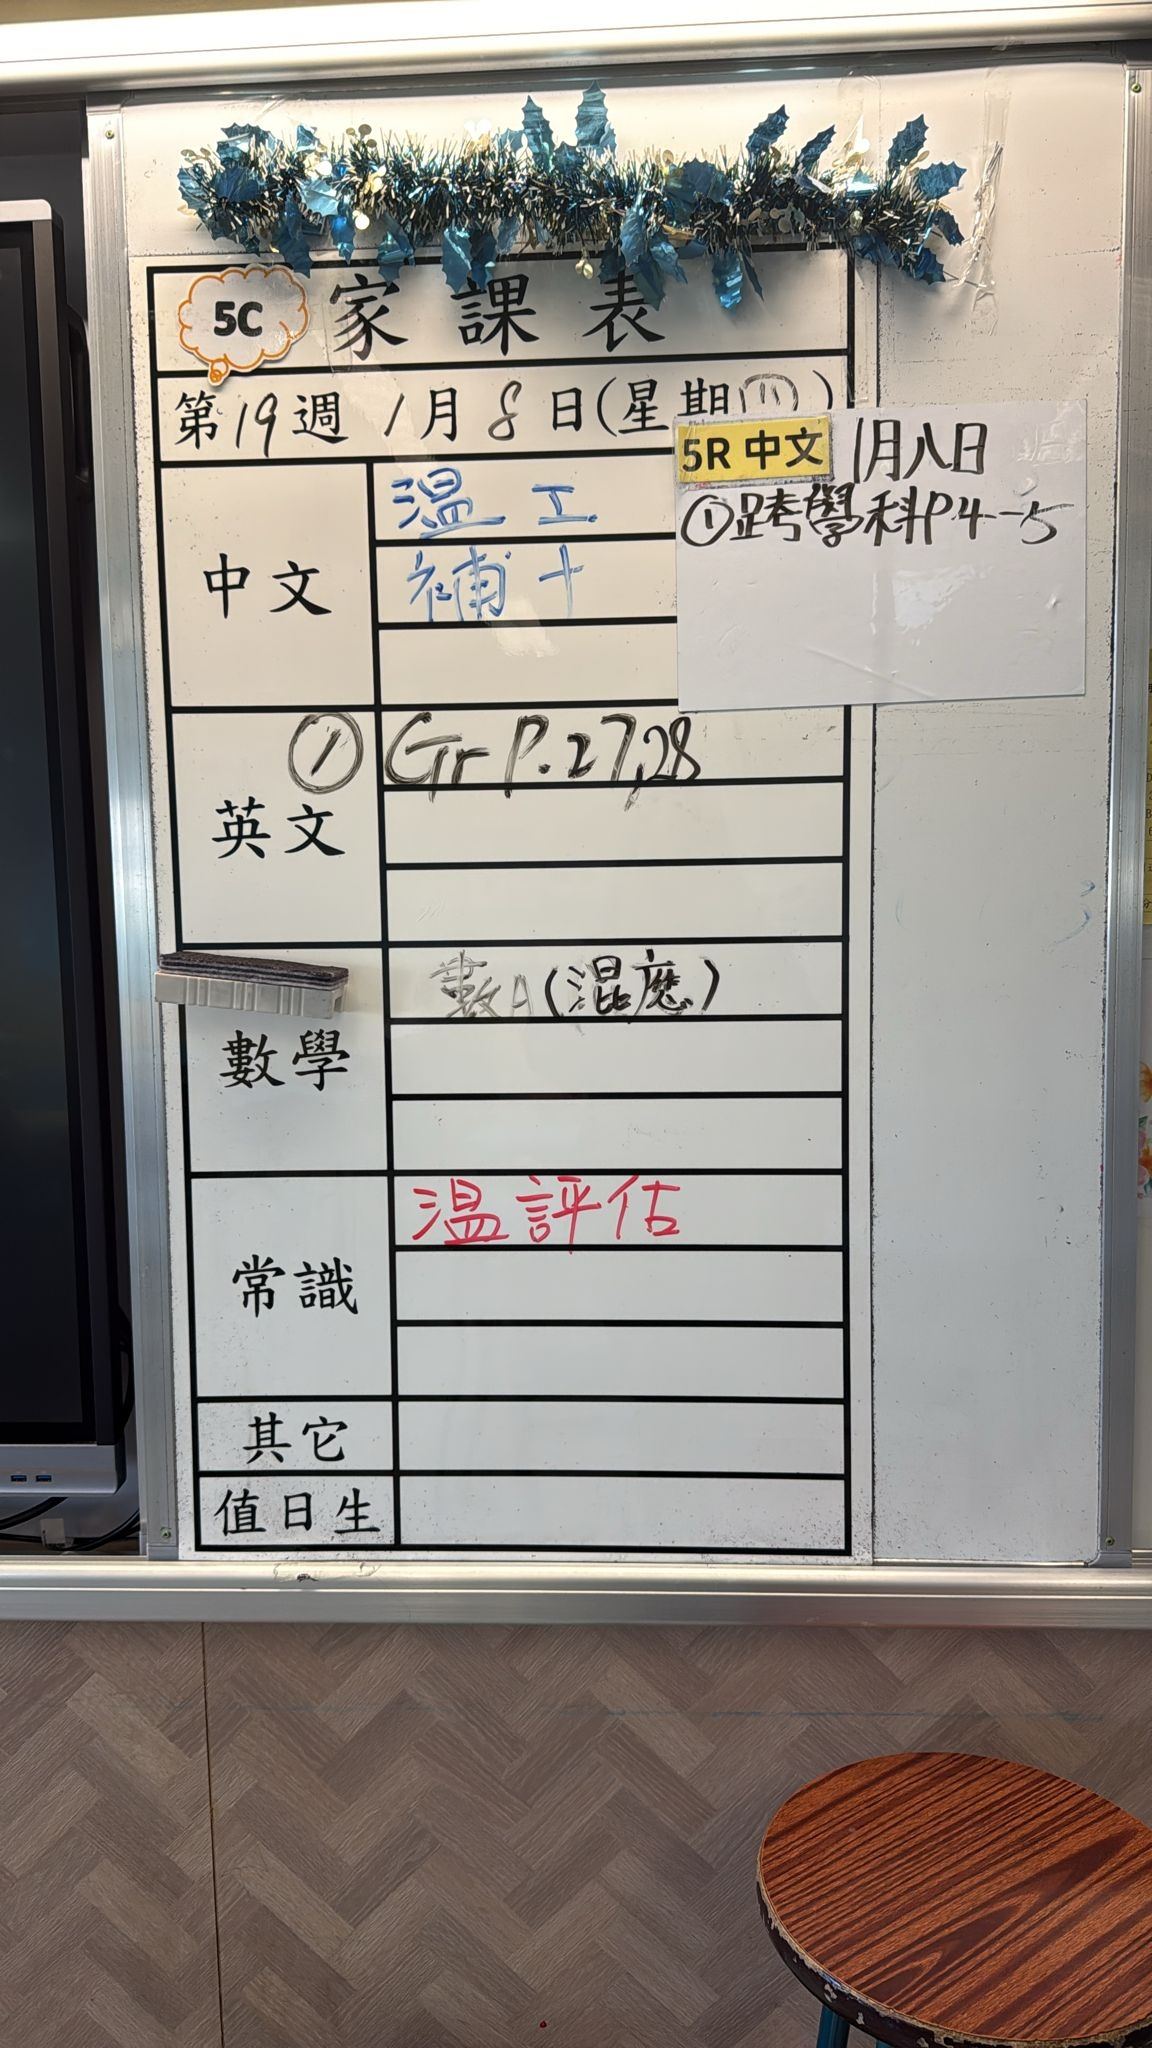 5C 家課表
第19週 1月8日(星期四)
5R 中文 1月八日
①跨學科P4-5
中文
温工
補十
英文
① Gr P.27,28
數學
數A(混應)
常識
温評估
其它
值日生